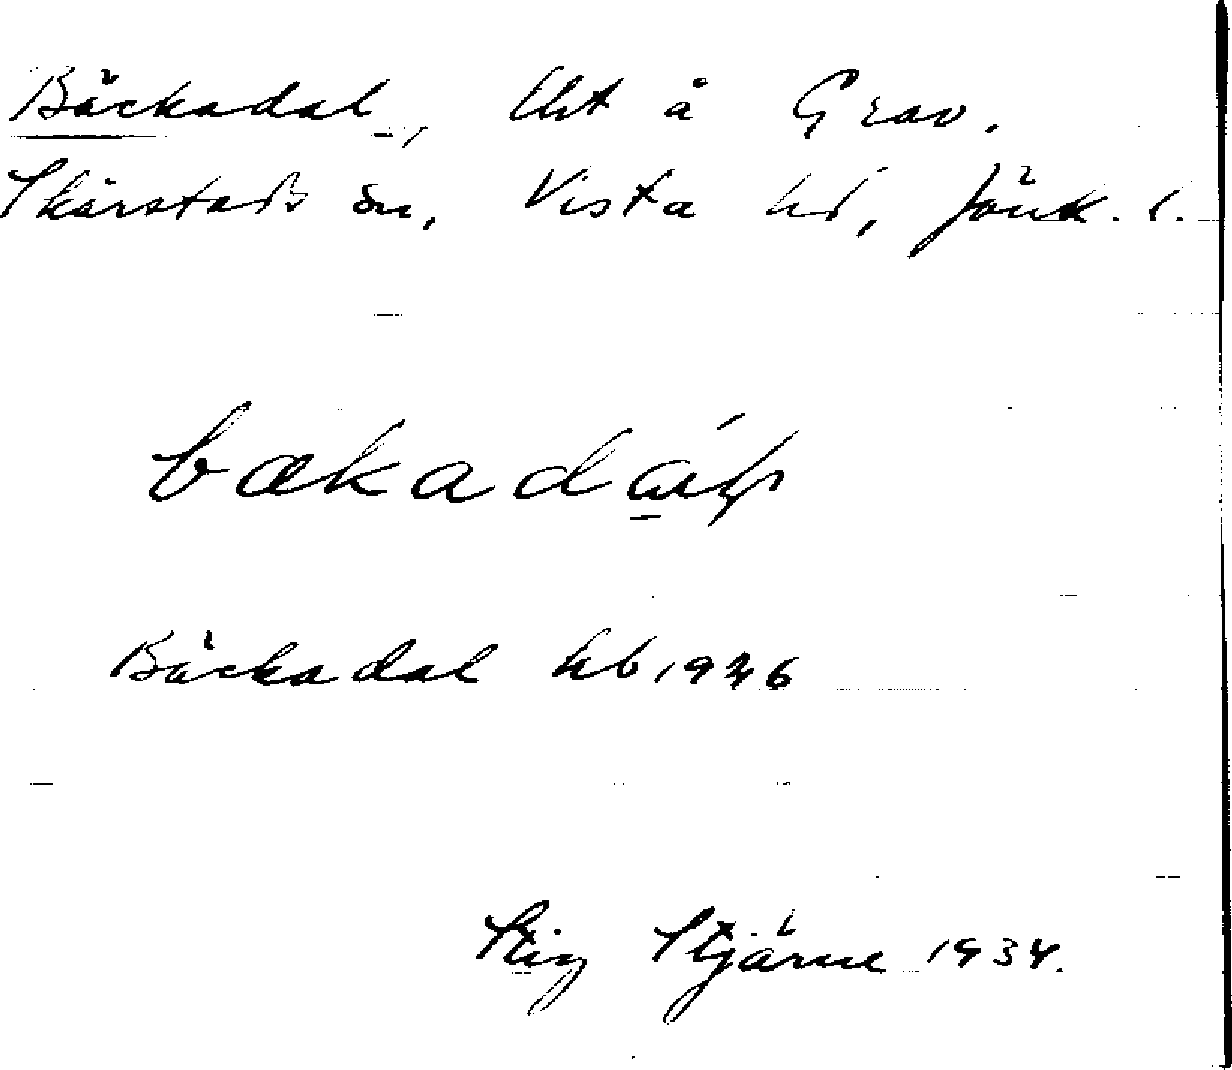 Bäckadal, lht å Grav.
Skärstads sn, Vista hd, Jönk. l.
Bäckadal hb 1926
Stig Stjärne 1934.